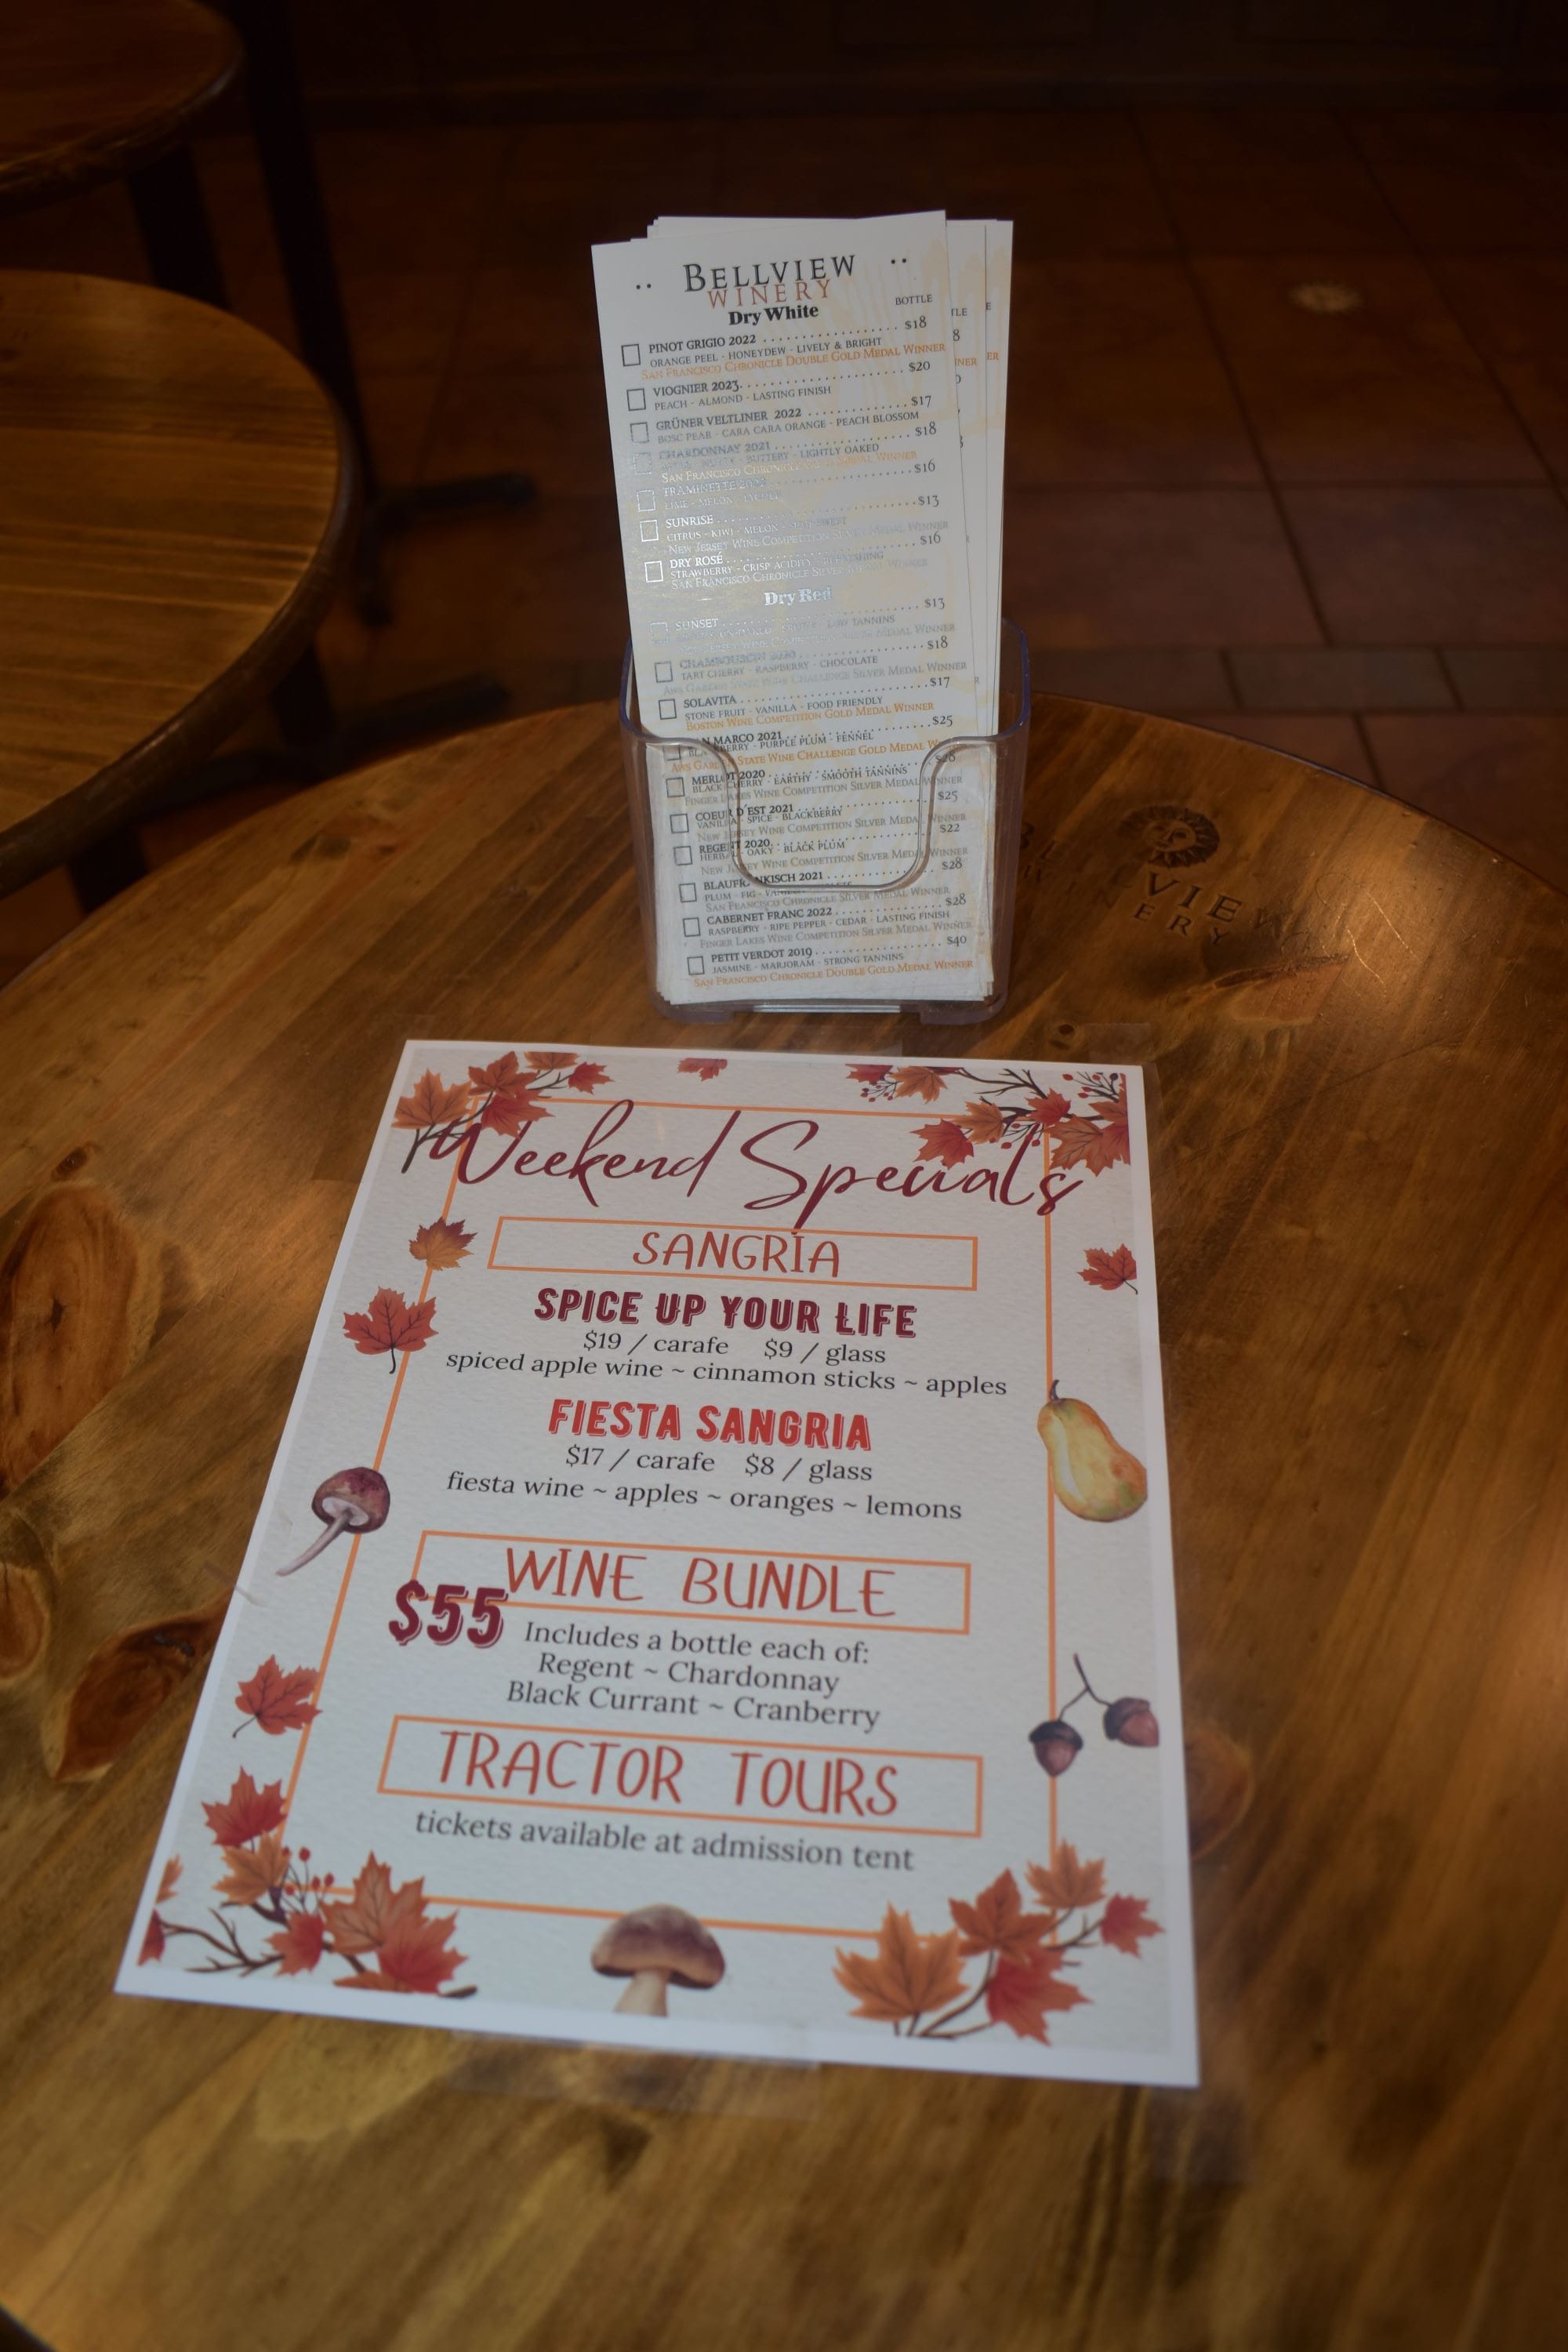 BELLVIEW
WINERY
Dry White
BOTTLE
PINOT GRIGIO 2022 $18
ORANGE PEEL - HONEYDEW - LIVELY & BRIGHT
SAN FRANCISCO CHRONICLE DOUBLE GOLD MEDAL WINNER
VIOGNIER 2023 $20
PEACH - ALMOND - LASTING FINISH
GRÜNER VELTLINER 2022 $17
BOSC PEAR - CARA CARA ORANGE - PEACH BLOSSOM
CHARDONNAY 2021 $18
BUTTERY - LIGHTLY OAKED
SAN FRANCISCO CHRONICLE WINNER
TRAMINETTE $16
LIME - MELON
SUNRISE $13
CITRUS - KIWI - MELON
NEW JERSEY WINE COMPETITION SILVER MEDAL WINNER
DRY ROSÉ $16
STRAWBERRY - CRISP ACIDITY
SAN FRANCISCO CHRONICLE SILVER MEDAL WINNER
Dry Red
SUNSET $13
LOW TANNINS
MEDAL WINNER
CHAMBOURCIN 2020 $18
TART CHERRY - RASPBERRY - CHOCOLATE
AWS GARDEN STATE WINE CHALLENGE SILVER MEDAL WINNER
SOLAVITA $17
STONE FRUIT - VANILLA - FOOD FRIENDLY
BOSTON WINE COMPETITION GOLD MEDAL WINNER
SAN MARCO 2021 $25
BLACKBERRY - PURPLE PLUM - FENNEL
AWS GARDEN STATE WINE CHALLENGE GOLD MEDAL WINNER
MERLOT 2020
BLACK CHERRY - EARTHY - SMOOTH TANNINS
FINGER LAKES WINE COMPETITION SILVER MEDAL WINNER
COEUR D'EST 2021 $25
VANILLA - SPICE - BLACKBERRY
NEW JERSEY WINE COMPETITION SILVER MEDAL WINNER
REGENT 2020 $22
HERBAL - OAKY - BLACK PLUM
NEW JERSEY WINE COMPETITION SILVER MEDAL WINNER
BLAUFRANKISCH 2021 $28
PLUM - FIG
SAN FRANCISCO CHRONICLE SILVER MEDAL WINNER
CABERNET FRANC 2022 $28
RASPBERRY - RIPE PEPPER - CEDAR - LASTING FINISH
FINGER LAKES WINE COMPETITION SILVER MEDAL WINNER
PETIT VERDOT 2019 $40
JASMINE - MARJORAM - STRONG TANNINS
SAN FRANCISCO CHRONICLE DOUBLE GOLD MEDAL WINNER
VIE
NERY
Weekend Specials
SANGRIA
SPICE UP YOUR LIFE
$19 / carafe $9 / glass
spiced apple wine ~ cinnamon sticks ~ apples
FIESTA SANGRIA
$17 / carafe $8 / glass
fiesta wine ~ apples ~ oranges ~ lemons
WINE BUNDLE
$55
Includes a bottle each of:
Regent ~ Chardonnay
Black Currant ~ Cranberry
TRACTOR TOURS
tickets available at admission tent